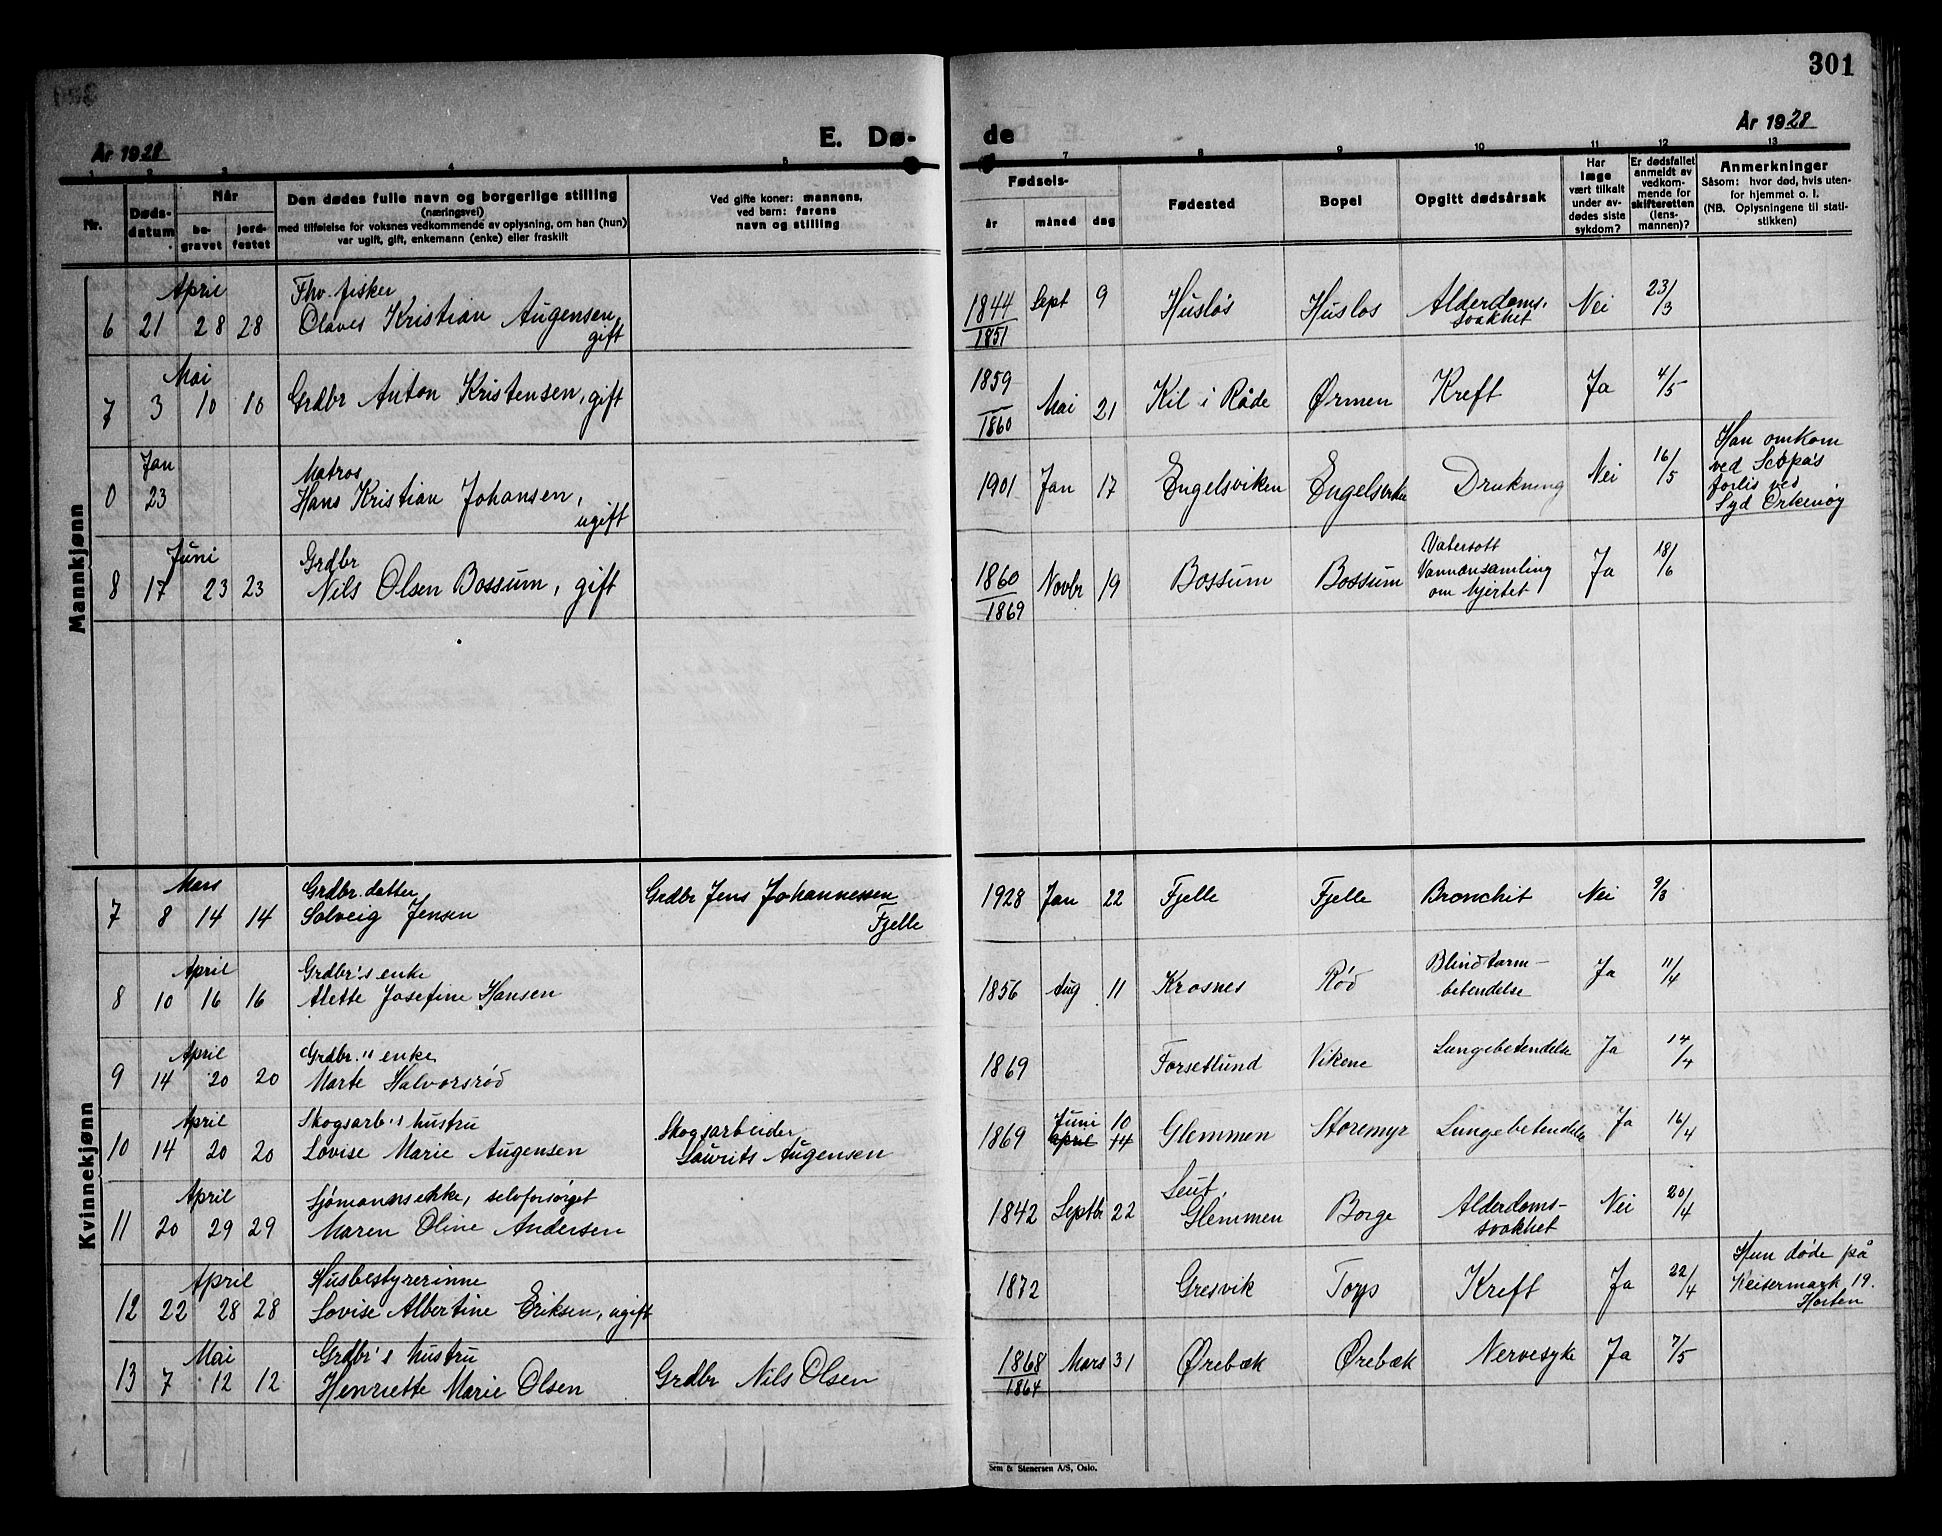 301
År 1928
E. Dø-
de
År 1928
1 2 3 4 5
7 8 9 10 11 12 13
Nr.
Døds-
datum
Når
be-
gravet
jord-
festet
Den dødes fulle navn og borgerlige stilling
(næringsvei)
med tilføielse for voksnes vedkommende av oplysning, om han (hun)
var ugift, gift, enkemann (enke) eller fraskilt
Ved gifte koner: mannens,
ved barn: farens
navn og stilling
Fødsels-
år
måned
dag
Fødested
Bopel
Opgitt dødsårsak
Har
læge
vært tilkalt
under av-
dødes siste
sykdom?
Er dødsfallet
anmeldt av
vedkom-
mende for
skifteretten
(lens-
mannen)?
Anmerkninger
Såsom: hvor død, hvis uten-
for hjemmet o. l.
(NB. Oplysningene til stati-
stikken)
Mannkjønn
April Fhv. fisker
6 21 28 28 Olaves Kristian Augensen,
gift
1844 Sept 9 Husløs Husløs Alderdoms- Nei 23/3
1851 svakhet
Mai
7 3 10 10 Grdbr Anton Kristensen, gift
1859
1860 Mai 21 Kil i Råde Ørmen Kreft Ja 4/5
Jan Matros
0 23 Hans Kristian Johansen,
ugift
1901 Jan 17 Engelsviken Engelsviken Drukning Nei 16/5
Han omkom
ved
forlis ved
Syd Orkenøy
Juni Grdbr
8 17 23 23 Nils Olsen Bossum, gift
1860 Novbr 19 Bossum Bossum Vatersott Ja 18/6
1869
Vannansamling
om hjertet
Kvinnekjønn
Mars Grdbr datter
7 8 14 14 Solveig Jensen
Grdbr Jens Johannessen
Fjelle
1928 Jan 22 Fjelle Fjelle Bronchit Nei 9/3
April Grdbr's enke
8 10 16 16 Alette Josefine Hansen
1856 Aug 11 Krosnes Rød Blindtarm- Ja 11/4
betendelse
April Grdbr." enke
9 14 20 20 Marte Halvorsrød
1869 Forsetlund Vikene Lungebetendelse Ja 17/4
April Skogsarb's hustru
10 14 20 20 Lovise Marie Augensen
Skogsarbeider
Laurits Augensen
Juni 10
1869 april 14 Glemmen Storemyr Lungebetendelse Ja 16/4
April Sjømannsenke, selvforsørget
11 20 29 29 Maren Oline Andersen
1842 Septbr 22 Leut, Borge Alderdoms- Nei 20/4
Glemmen svakhet
April Husbestyrerinne
12 22 28 28 Lovise Albertine Eriksen, ugift
1872 Gresvik Torp Kreft Ja 22/4
Hun døde på
Keisermark 19.
Horten
Mai Grdbr's hustru
13 7 12 12 Henriette Marie Olsen
Grdbr Nils Olsen
1868 Mars 31 Ørebæk Ørebæk Nervesyke Ja 7/5
1864
Sem & Stenersen A/S, Oslo.